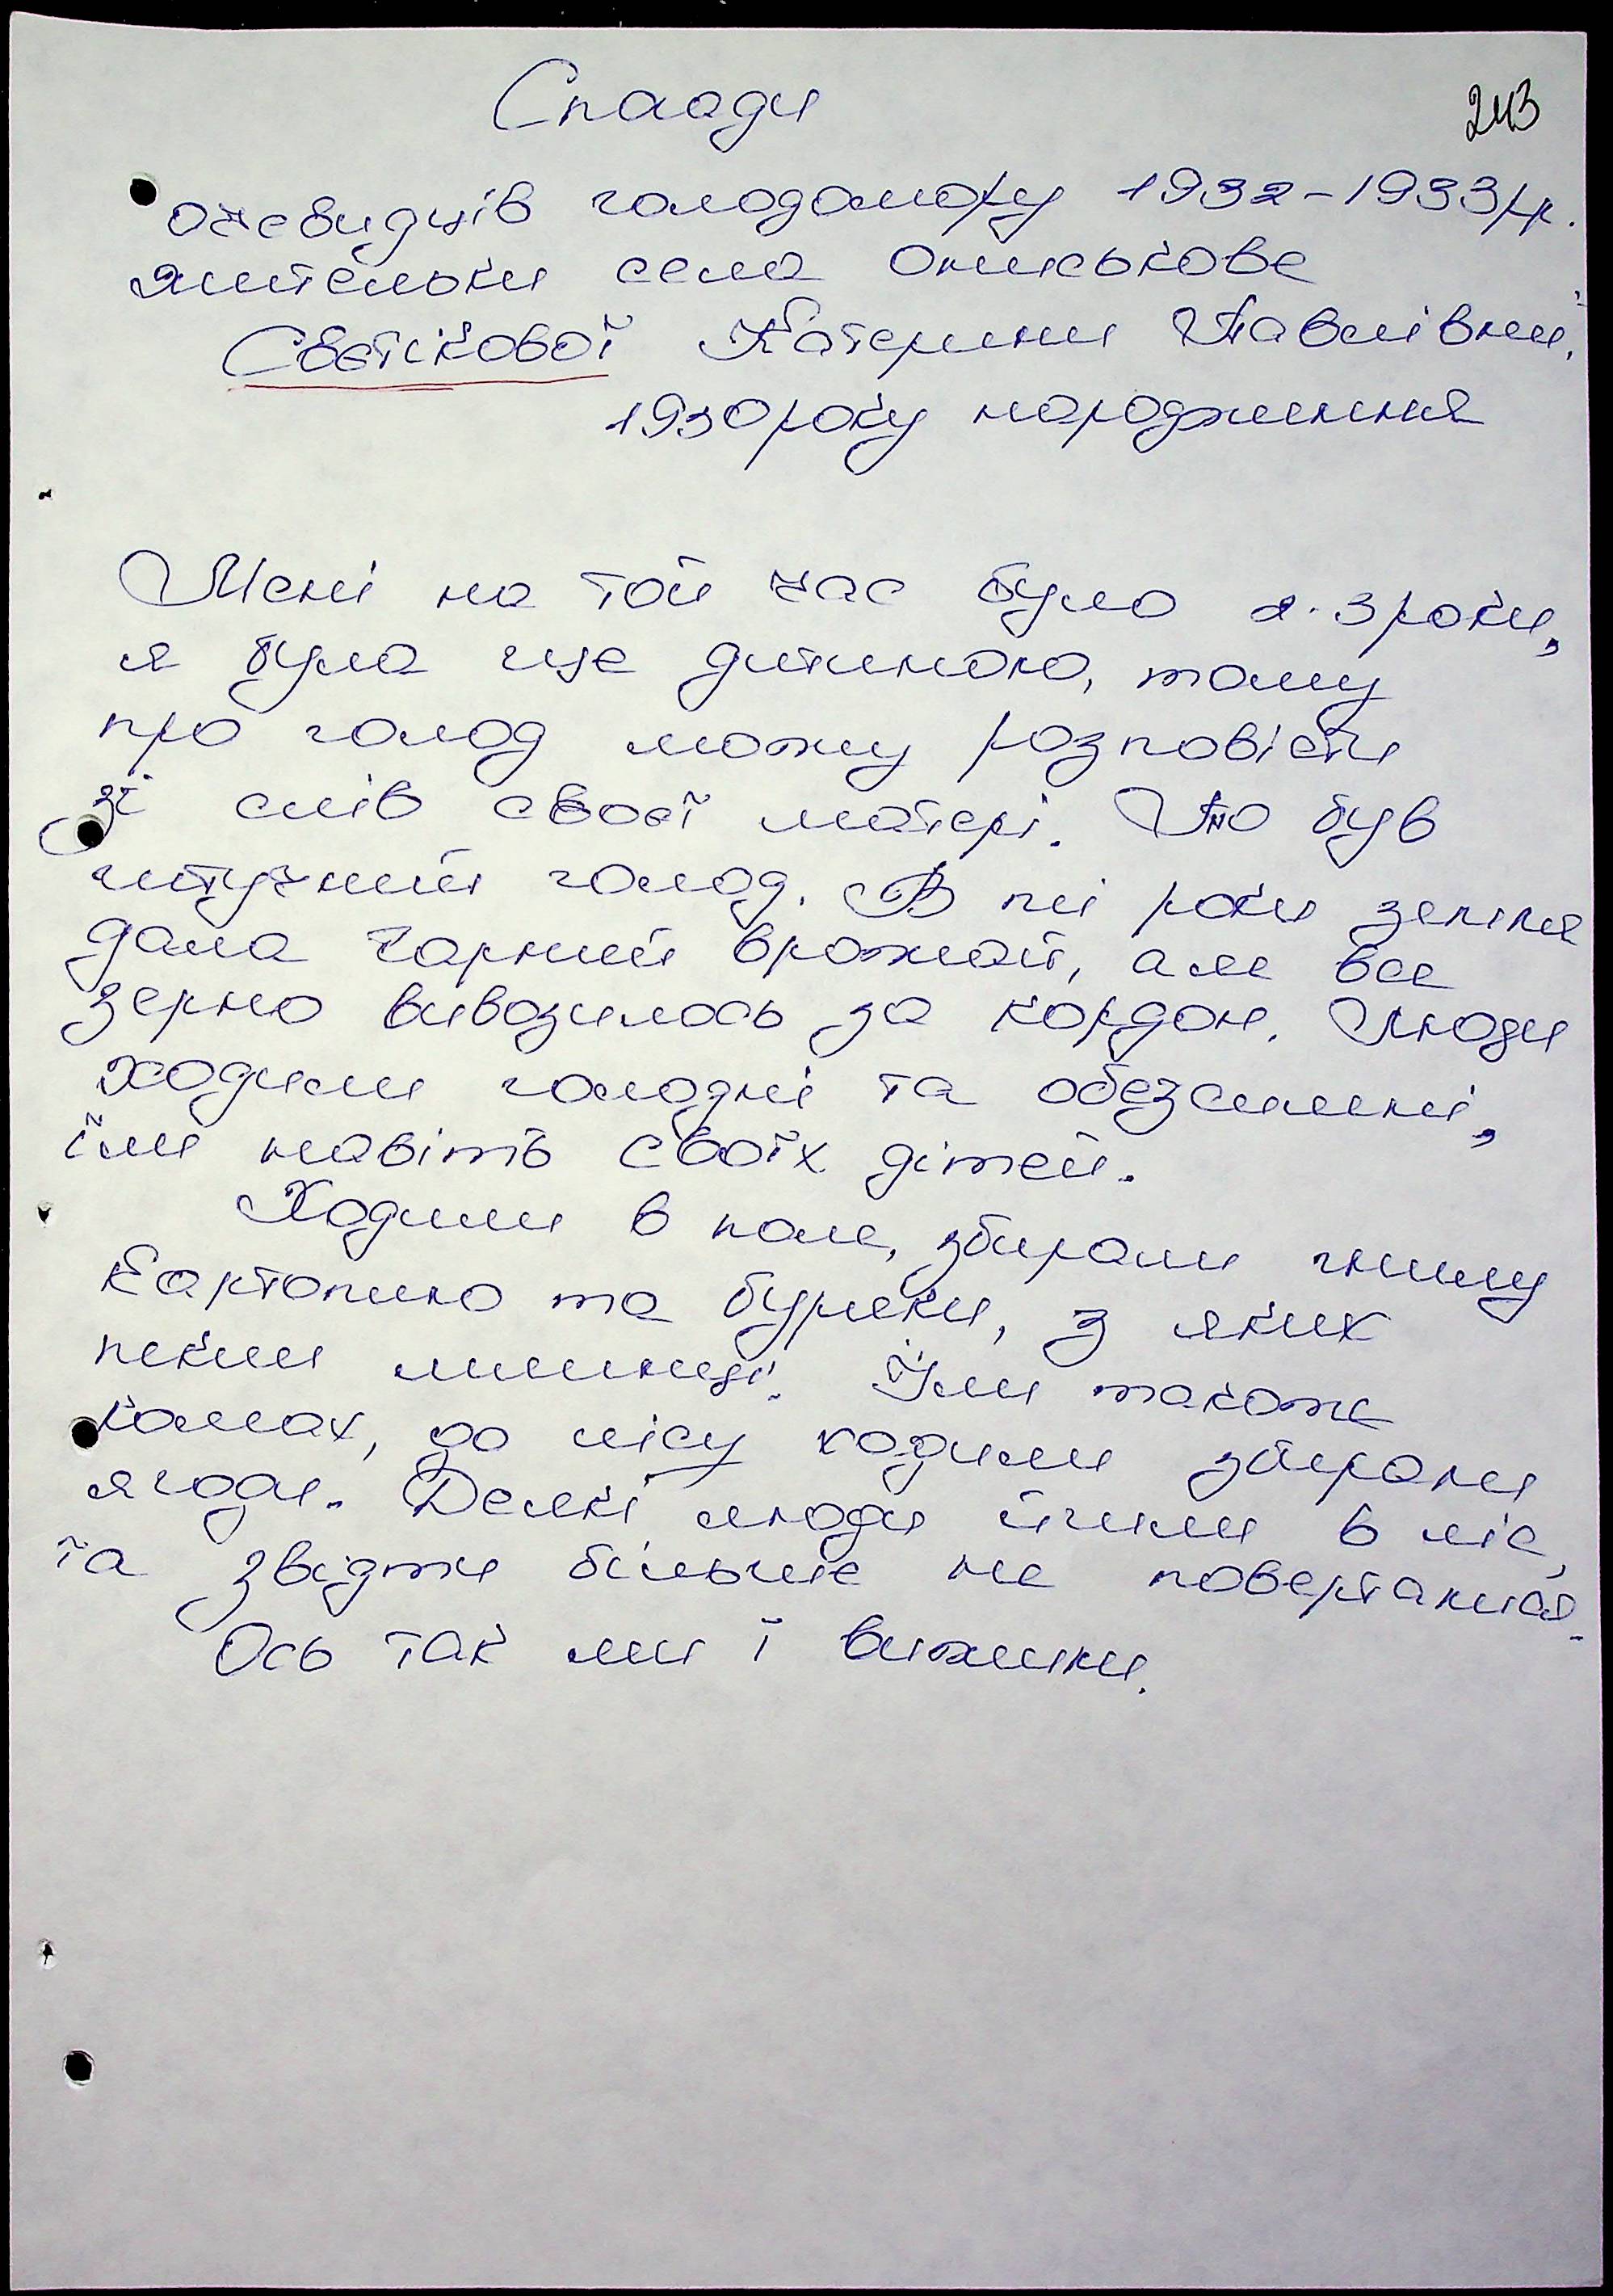 Спогади
243
очевидців голодомору 1932-1933рр.
жительки села Ониськове
Свєтікової Катерини Павлівни,
1930 року народження
Мені на той час було 2-3 роки,
я була ще дитиною, тому
про голод можу розповісти
зі слів своєї матері. То був
штучний голод. В ті роки земля
дала гарний врожай, але все
зерно вивозилось за кордон. Люди
ходили голодні та обезсилені,
їли навіть своїх дітей.
Ходили в поле, збирали гнилу
картоплю та буряки, з яких
пекли млинці. Їли також
комах, до лісу ходили збирали
ягоди. Деякі люди йшли в ліс,
та звідти більше не повертались.
Ось так ми і вижили.